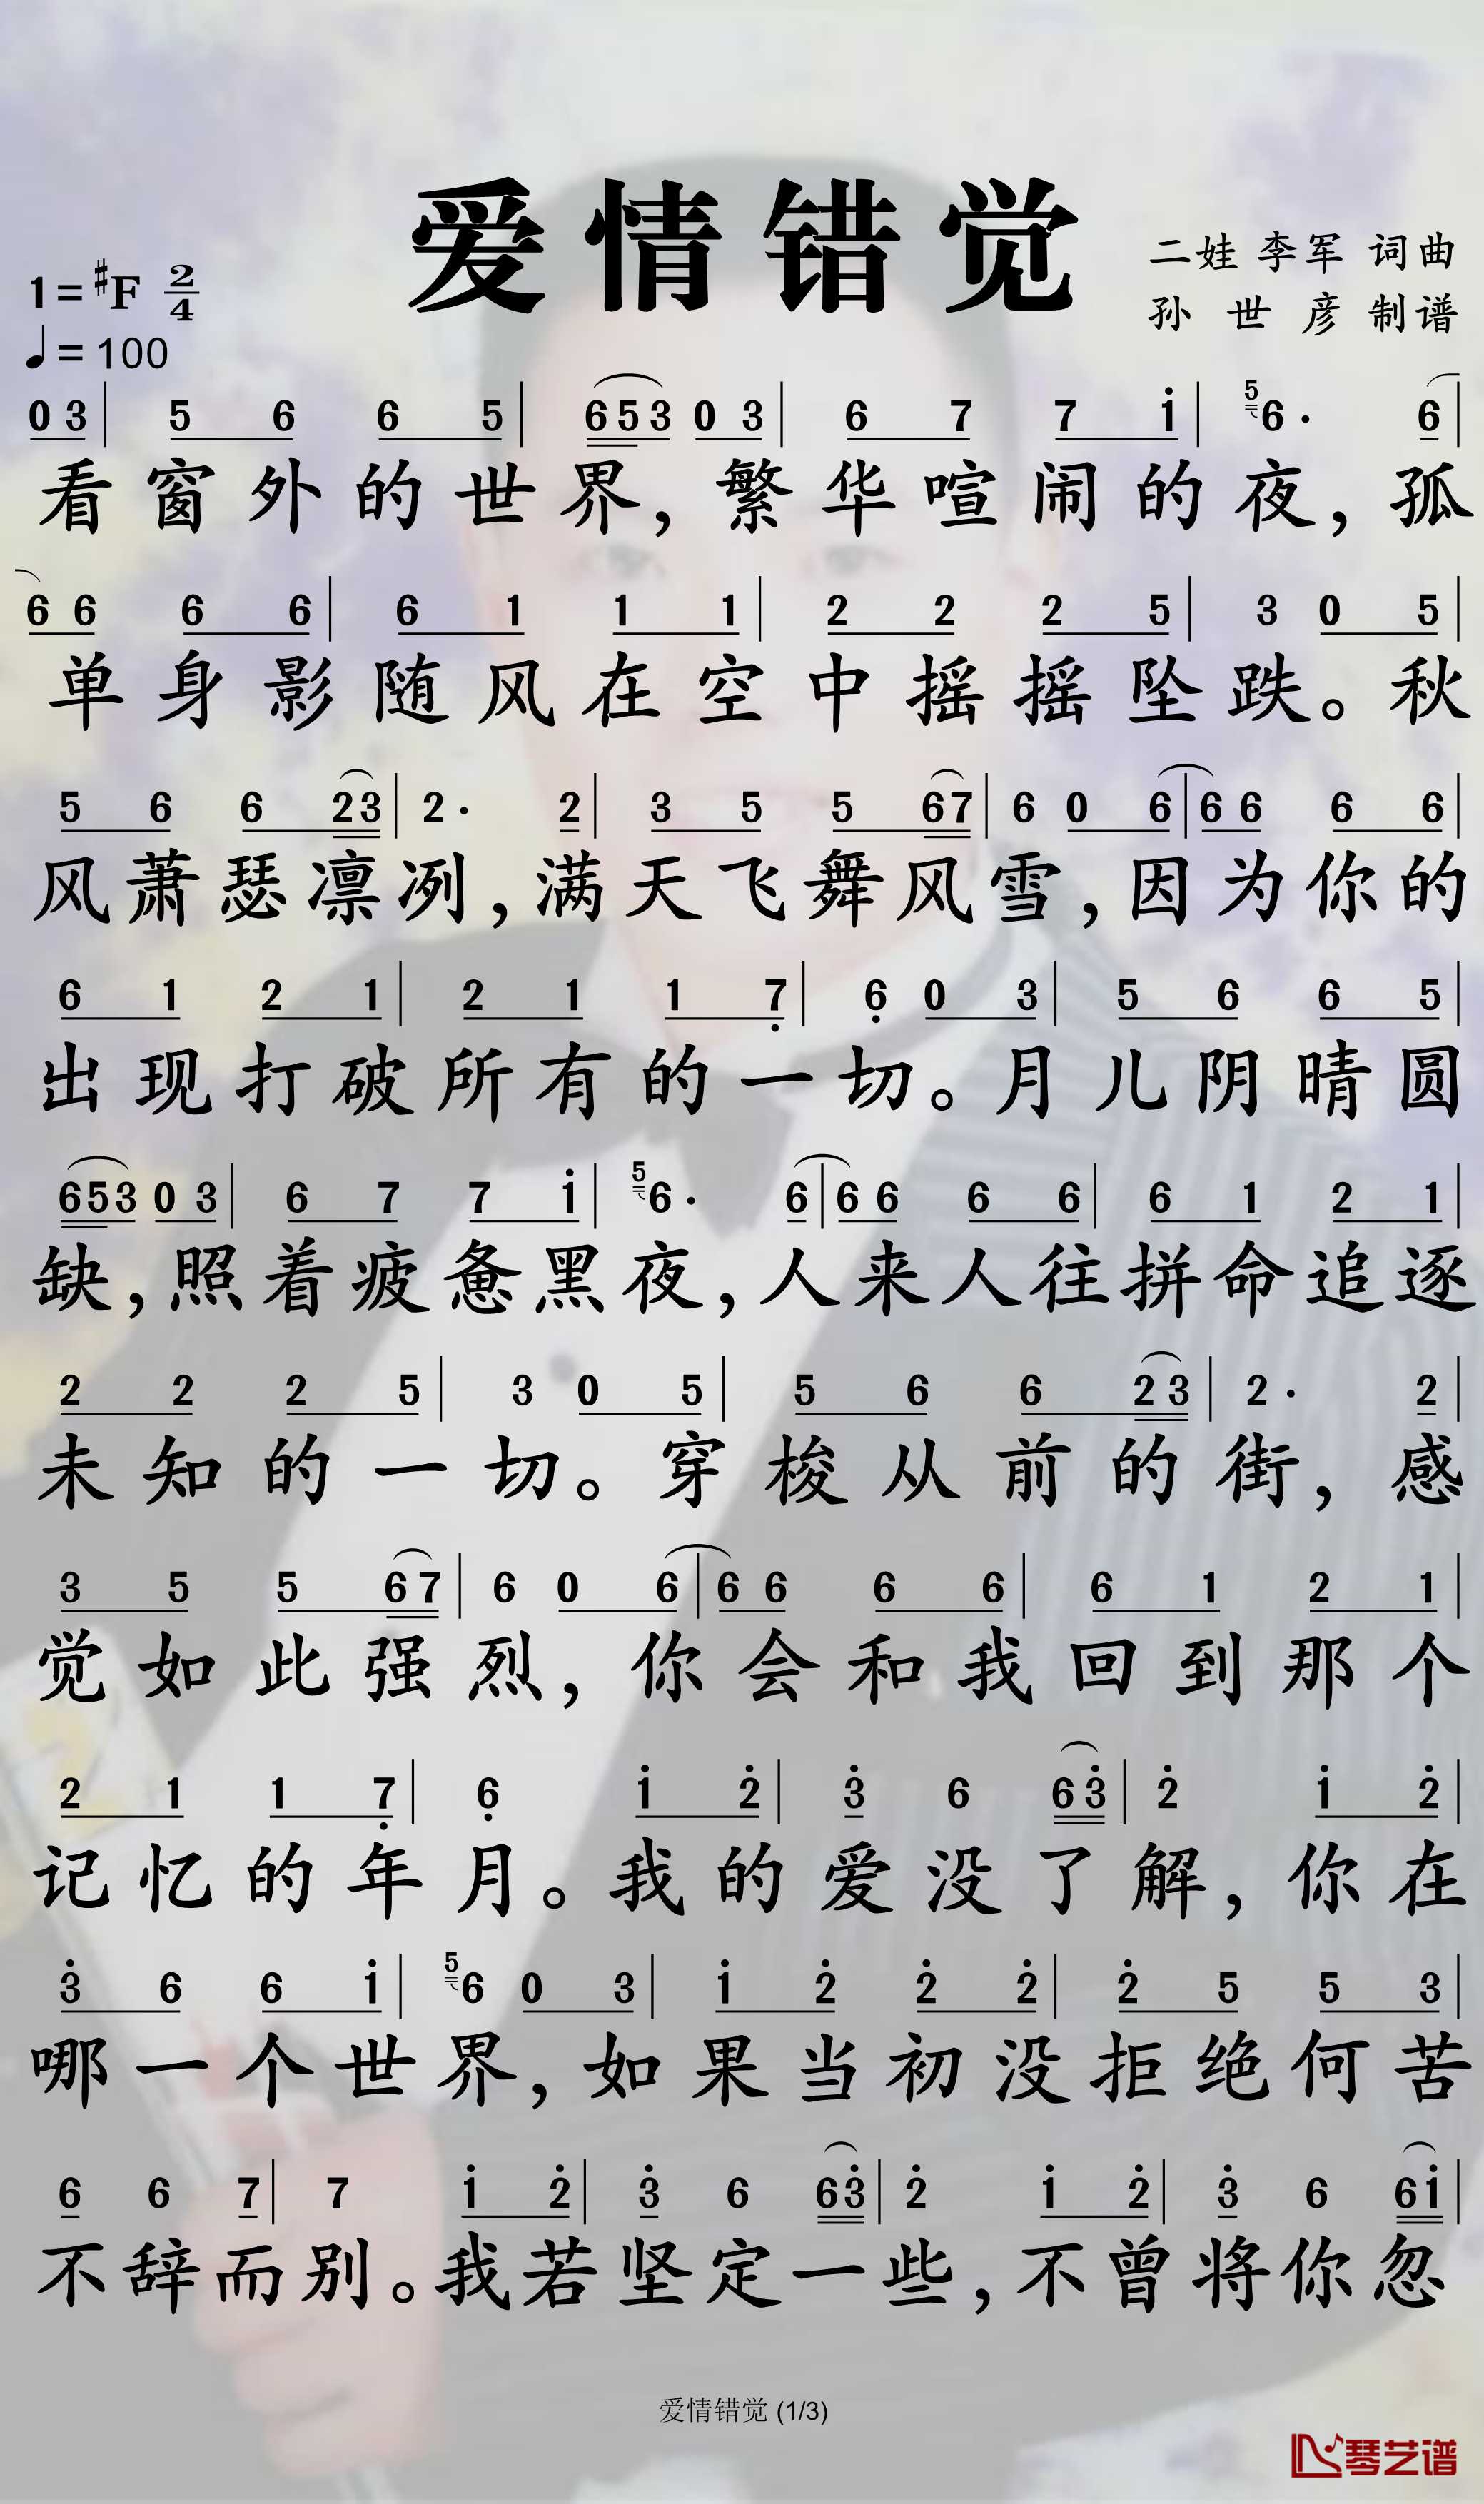 爱情错觉
二娃 李军 词曲
孙世彦 制谱
1=#F 2/4
♩=100
0 3 | 5 6 6 5 | 6 5 3 0 3 | 6 7 7 i | 5 6· 6 |
看窗外的世界,繁华喧闹的夜,孤
6 6 6 6 | 6 1 1 1 | 2 2 2 5 | 3 0 5 |
单身影随风在空中摇摇坠跌。秋
5 6 6 2 3 | 2· 2 | 3 5 5 6 7 | 6 0 6 | 6 6 6 6 |
风萧瑟凛冽,满天飞舞风雪,因为你的
6 1 2 1 | 2 1 1 7̣ | 6̣ 0 3 | 5 6 6 5 |
出现打破所有的一切。月儿阴晴圆
6 5 3 0 3 | 6 7 7 i | 5 6· 6 | 6 6 6 6 | 6 1 2 1 |
缺,照着疲惫黑夜,人来人往拼命追逐
2 2 2 5 | 3 0 5 | 5 6 6 2 3 | 2· 2 |
未知的一切。穿梭从前的街,感
3 5 5 6 7 | 6 0 6 | 6 6 6 6 | 6 1 2 1 |
觉如此强烈,你会和我回到那个
2 1 1 7̣ | 6̣ i 2̇ | 3̇ 6 6 3̇ | 2̇ i 2̇ |
记忆的年月。我的爱没了解,你在
3̇ 6 6 i | 5 6 0 3 | i 2̇ 2̇ 2̇ | 2̇ 5 5 3 |
哪一个世界,如果当初没拒绝何苦
6 6 7 | 7 i 2̇ | 3̇ 6 6 3̇ | 2̇ i 2̇ | 3̇ 6 6 i |
不辞而别。我若坚定一些,不曾将你忽
爱情错觉 (1/3)
琴艺谱